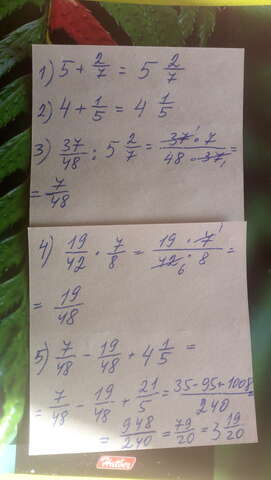 1) 5 + 2/7 = 5 2/7
2) 4 + 1/5 = 4 1/5
3) 37/48 : 5 2/7 = 37 · 7 / 48 · 37 =
= 7/48
4) 19/42 · 7/8 = 19 · 7 / 42 6 · 8 =
= 19/48
5) 7/48 - 19/48 + 4 1/5 =
= 7/48 - 19/48 + 21/5 = 35-95+1008/240 =
= 948/240 = 79/20 = 3 19/20